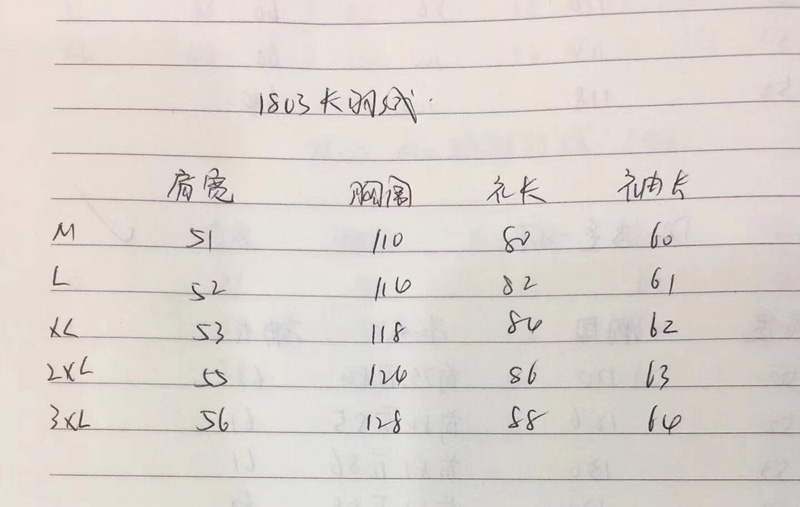 1803长羽绒.
肩宽 胸围 衣长 袖长
M 51 110 80 60
L 52 114 82 61
XL 53 118 84 62
2XL 55 124 86 63
3XL 56 128 88 64